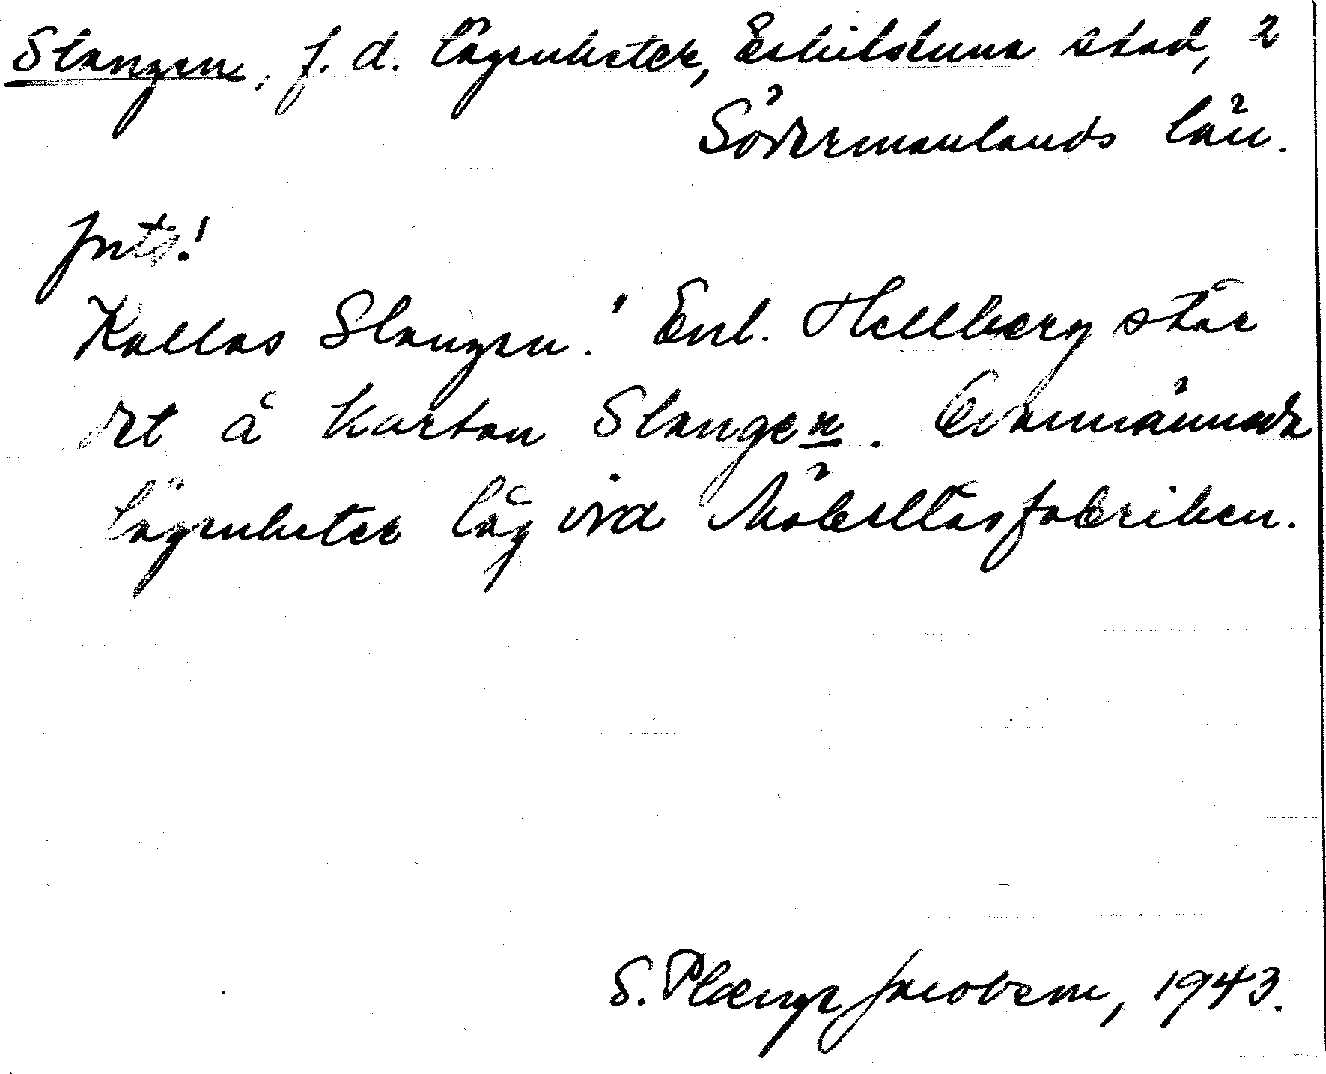 Slangen, f. d. lägenheter, Eskilstuna stad, 2
Södermanlands län.
Kallas Slangen. Enl. Hellberg står
det å kartan Slangen. Ovannämnda
lägenheter låg vid Möbellåsfabriken.
S. Plænge Jacobson, 1943.